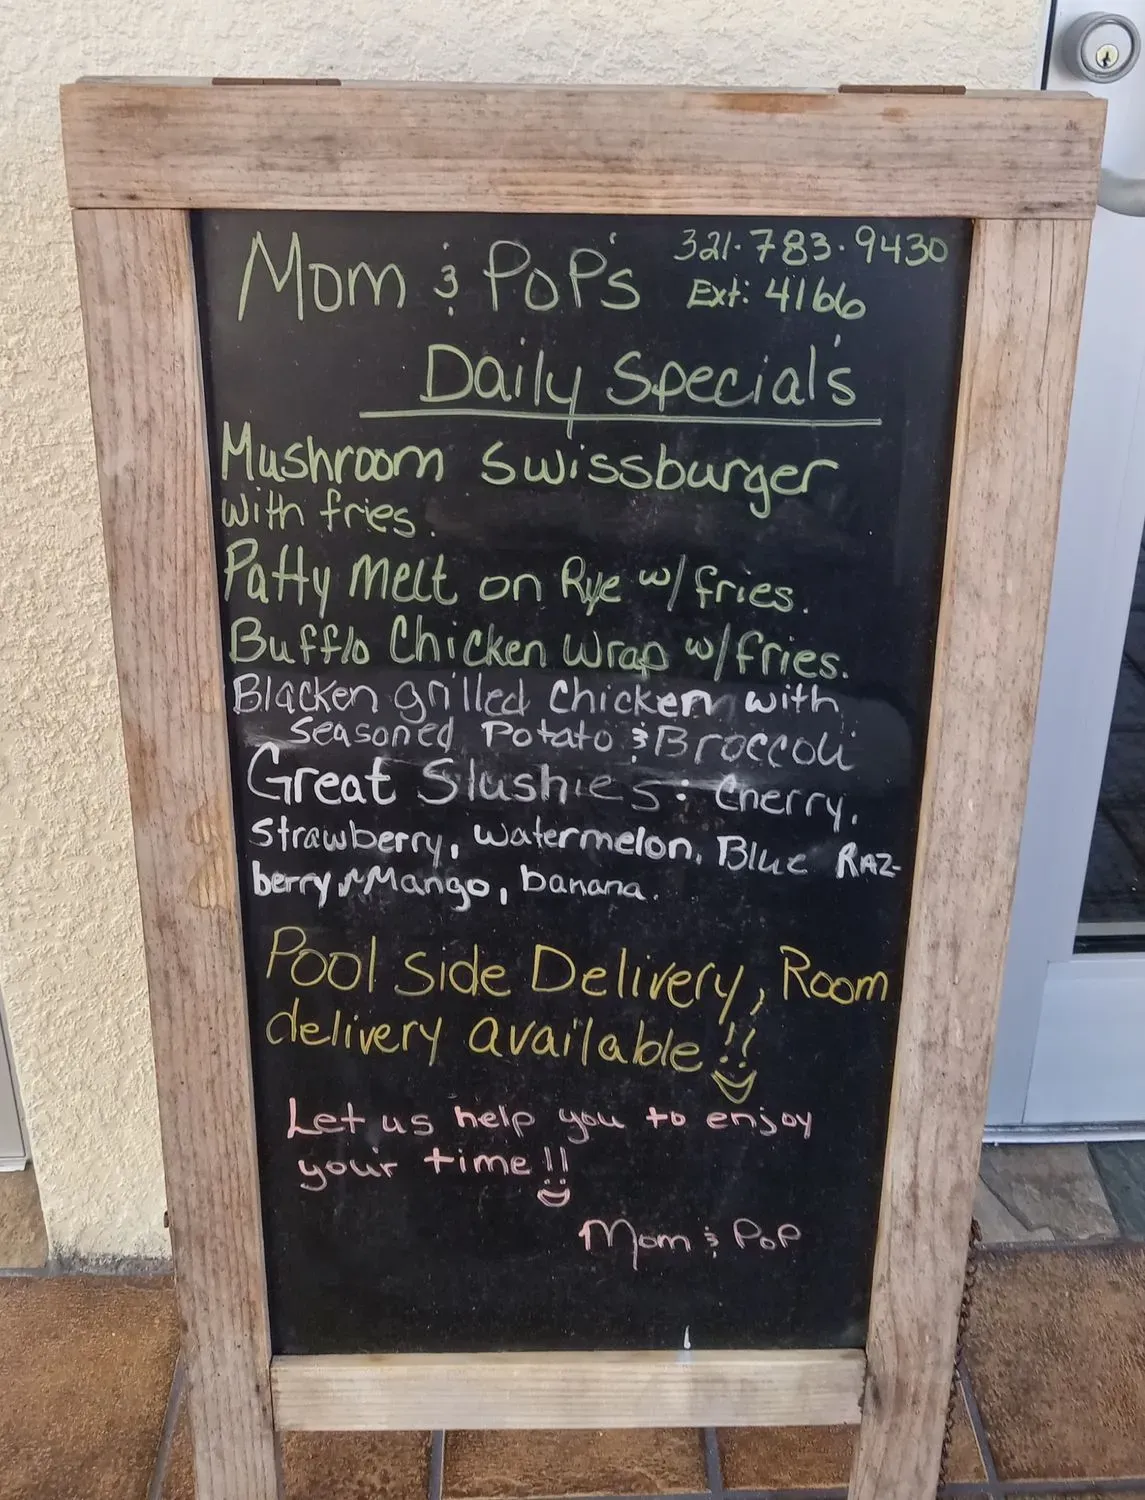 Mom & PoP's 321.783.9430
Ext: 4166
Daily Special's
Mushroom Swissburger
with fries.
Patty Melt on Rye w/fries.
Bufflo Chicken Wrap w/fries.
Blacken grilled chicken with
seasoned Potato & Broccoli
Great Slushies: Cherry,
strawberry, watermelon, Blue RAZ-
berry, Mango, banana.
Pool Side Delivery, Room
delivery available!!
Let us help you to enjoy
your time!!
Mom & PoP